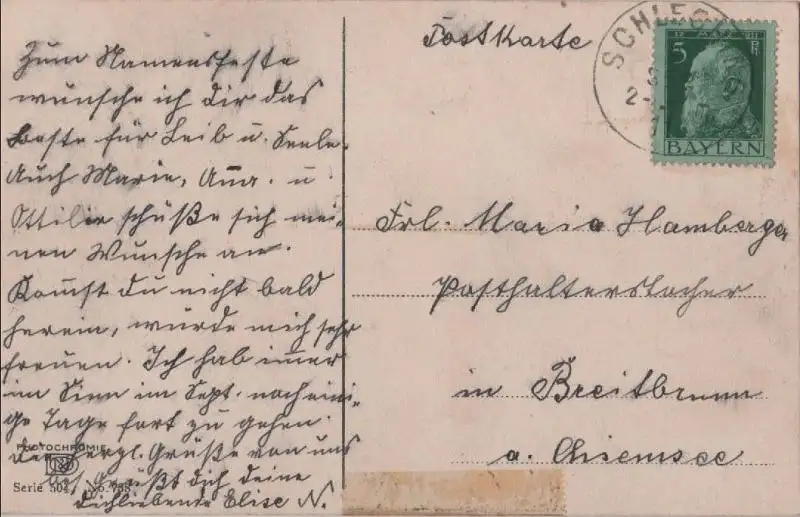 Zum Namensfeste
wünsche ich Dir das
Beste für Leib u. Seele.
Auch Marie, Anna. u
Ottilie schließe sich mei-
nen Wunsche an.
Kommst du nicht bald
herein, würde mich sehr
freuen. Ich hab immer
im Sinn im Sept. noch eini-
ge Tage fort zu gehen.
Die herzl. Grüße von uns
grüßt dich deine
dichliebende Elise N.
PHOTOCHROMIE
Serie 504 No. 785
Postkarte
SCHLEC
2-
5 Pf
12 MÄRZ 1911
BAYERN
Frl. Maria Hamberger
Posthalterstocher
in Breitbrunn
a. Chiemsee